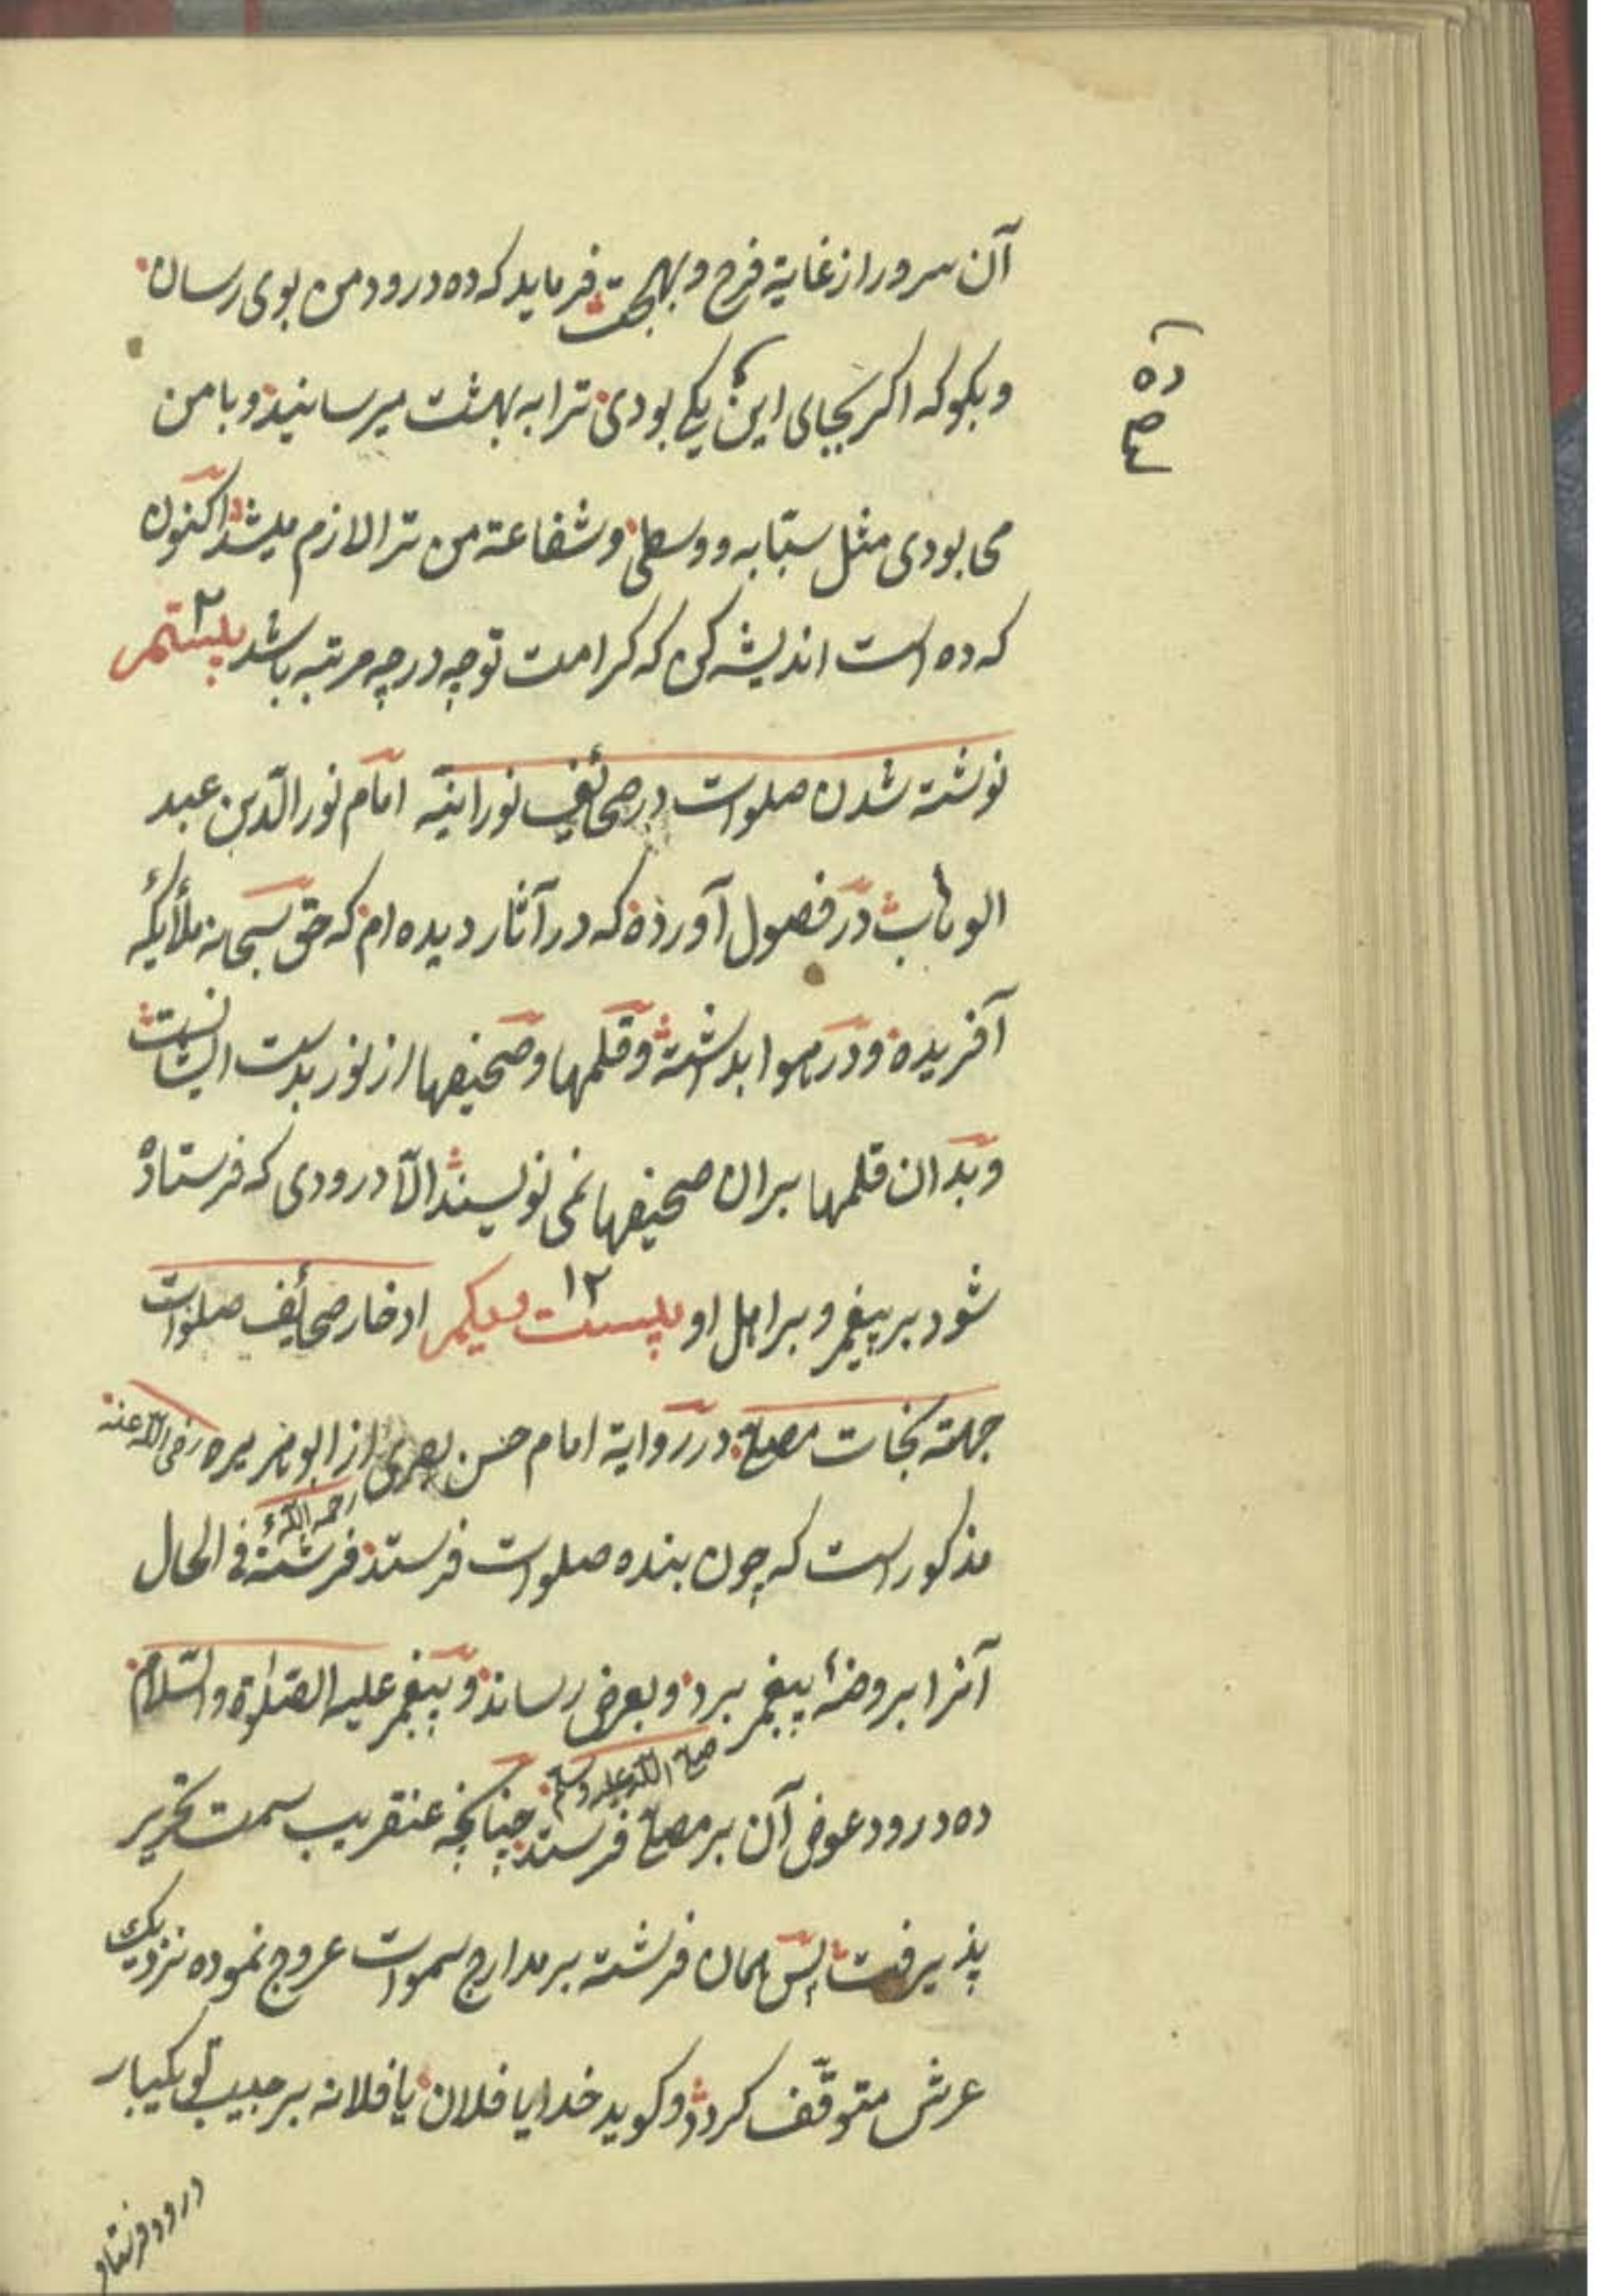 آن سرور از غایة فرح و بهجت فرماید که ده درود من بوی رسان
ده
صح
و بکو که اکر بجای این یکی بودی ترا به بهشت میرسانید و با من
می بودی مثل سبّابه و وسطی و شفاعة من ترا لازم میشد اکنون
که ده است اندیشه کن که کرامت تو چه درجه مرتبه باشد بیستم
۲
نوشته شدن صلوات در صحائف نورانیّه امام نور الدّین عبد
الوهاب در فصول آورده که در آثار دیده ام که حق سبحانه ملأیکهٔ
آفریده و در هوا بداشته و قلمها و صحیفها از نور بدست ایشانست
و بدان قلمها بران صحیفها نمی نویسند الّا درودی که فرستاده
شود بر پیغمبر و بر اهل او بیست و یکم ادخار صحائف صلوات
۱۲
جهته نجات مصلی در روایة امام حسن بصری از ابو هریره رضی الله عنه
رحمه الله
مذکور است که چون بنده صلوات فرستد فرشتهٔ فی الحال
آنرا بروضهٔ پیغمبر برد و بعرض رساند و پیغمبر علیه الصّلوة والسّلام
صلی الله علیه وسلم
ده درود عوض آن بر مصلی فرستد چنانچه عنقریب سمت تحریر
پذیرفت پس همان فرشته بر مدارج سموات عروج نموده نزدیک
عرش متوقّف کردد و کوید خدایا فلان یا فلانه بر حبیب تو یکبار
درود فرستاد